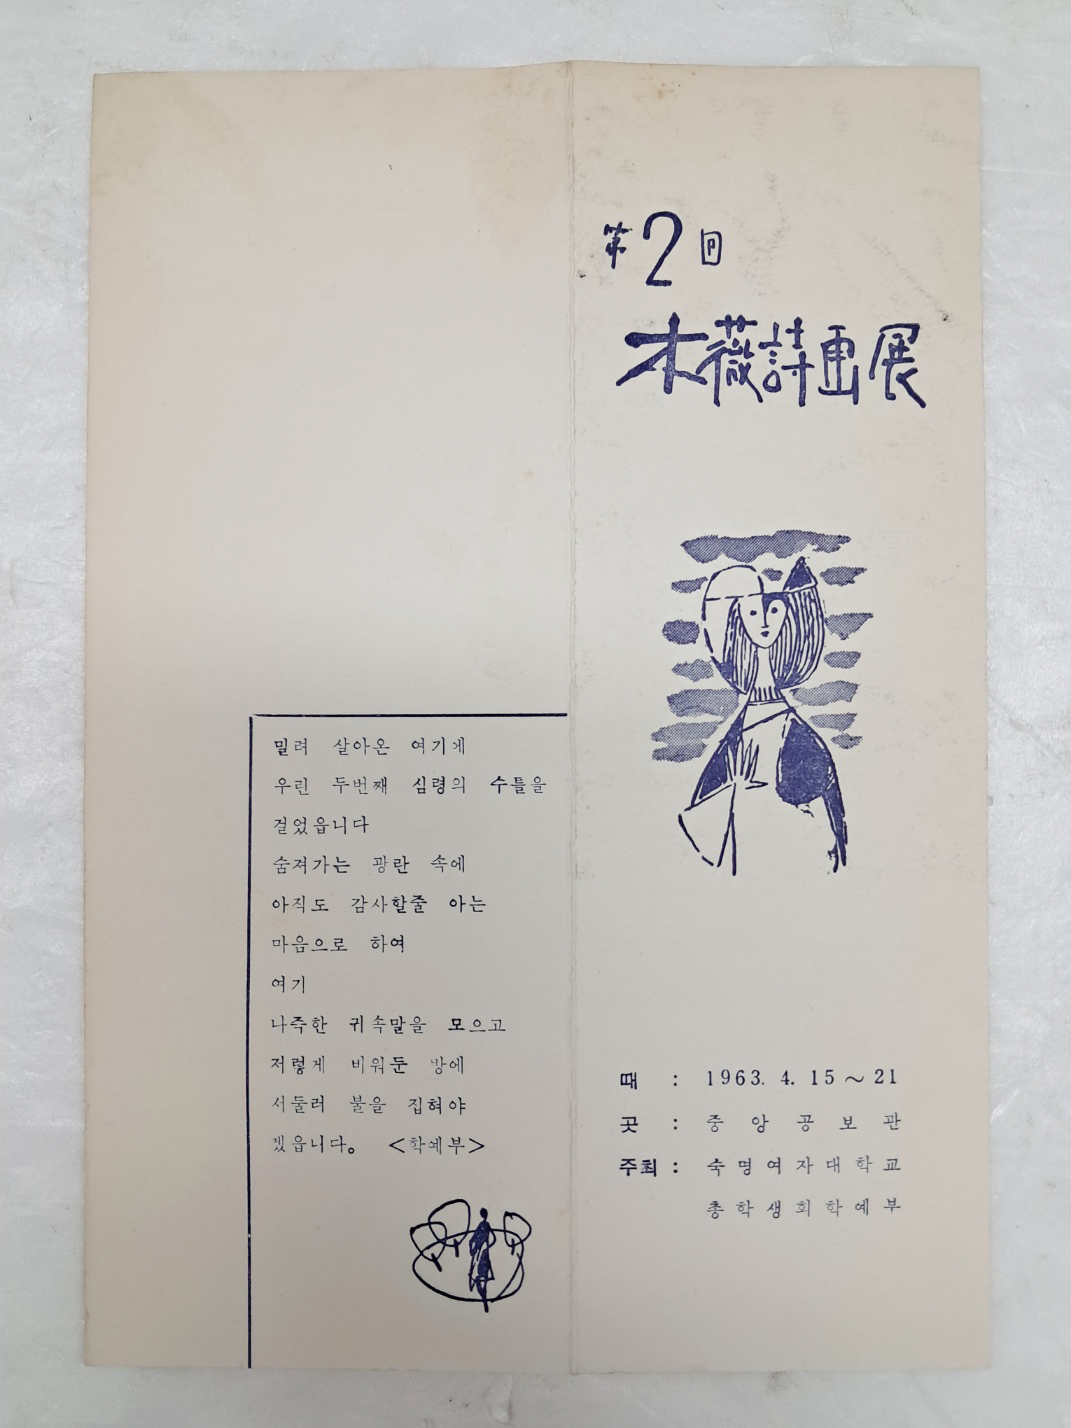 第2回
木薇詩画展
때 : 1963. 4. 15～21
곳 : 중앙공보관
주최 : 숙명여자대학교
총학생회학예부
밀려 살아온 여기에
우린 두번째 심령의 수틀을
걸었읍니다
숨져가는 광란 속에
아직도 감사할줄 아는
마음으로 하여
여기
나죽한 귀속말을 모으고
저렇게 비워둔 방에
서둘러 불을 집혀야
겠읍니다。 <학예부>